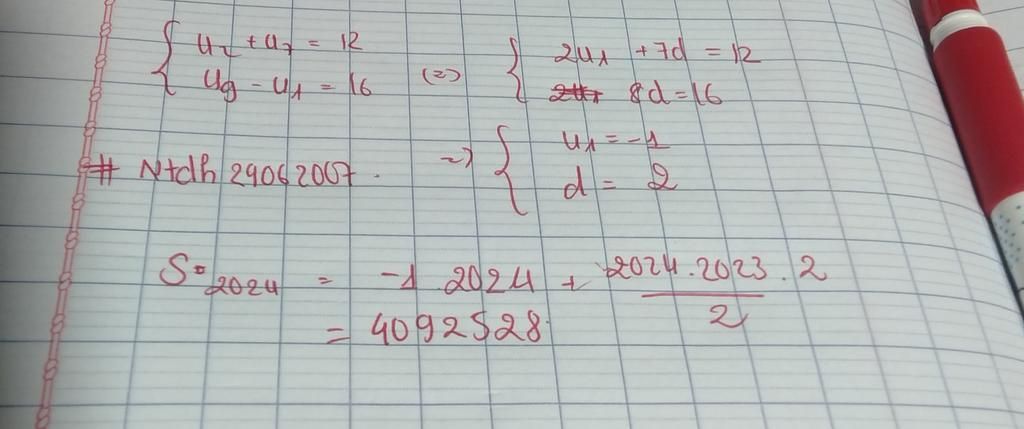 { u₂ + u₇ = 12 (=) { 2u₁ + 7d = 12
u₉ - u₁ = 16 8d = 16
# Ntdh 29062007. => { u₁ = -1
d = 2
S₂₀₂₄ = -1 2024 + 2024.2023 . 2 / 2
= 4092528